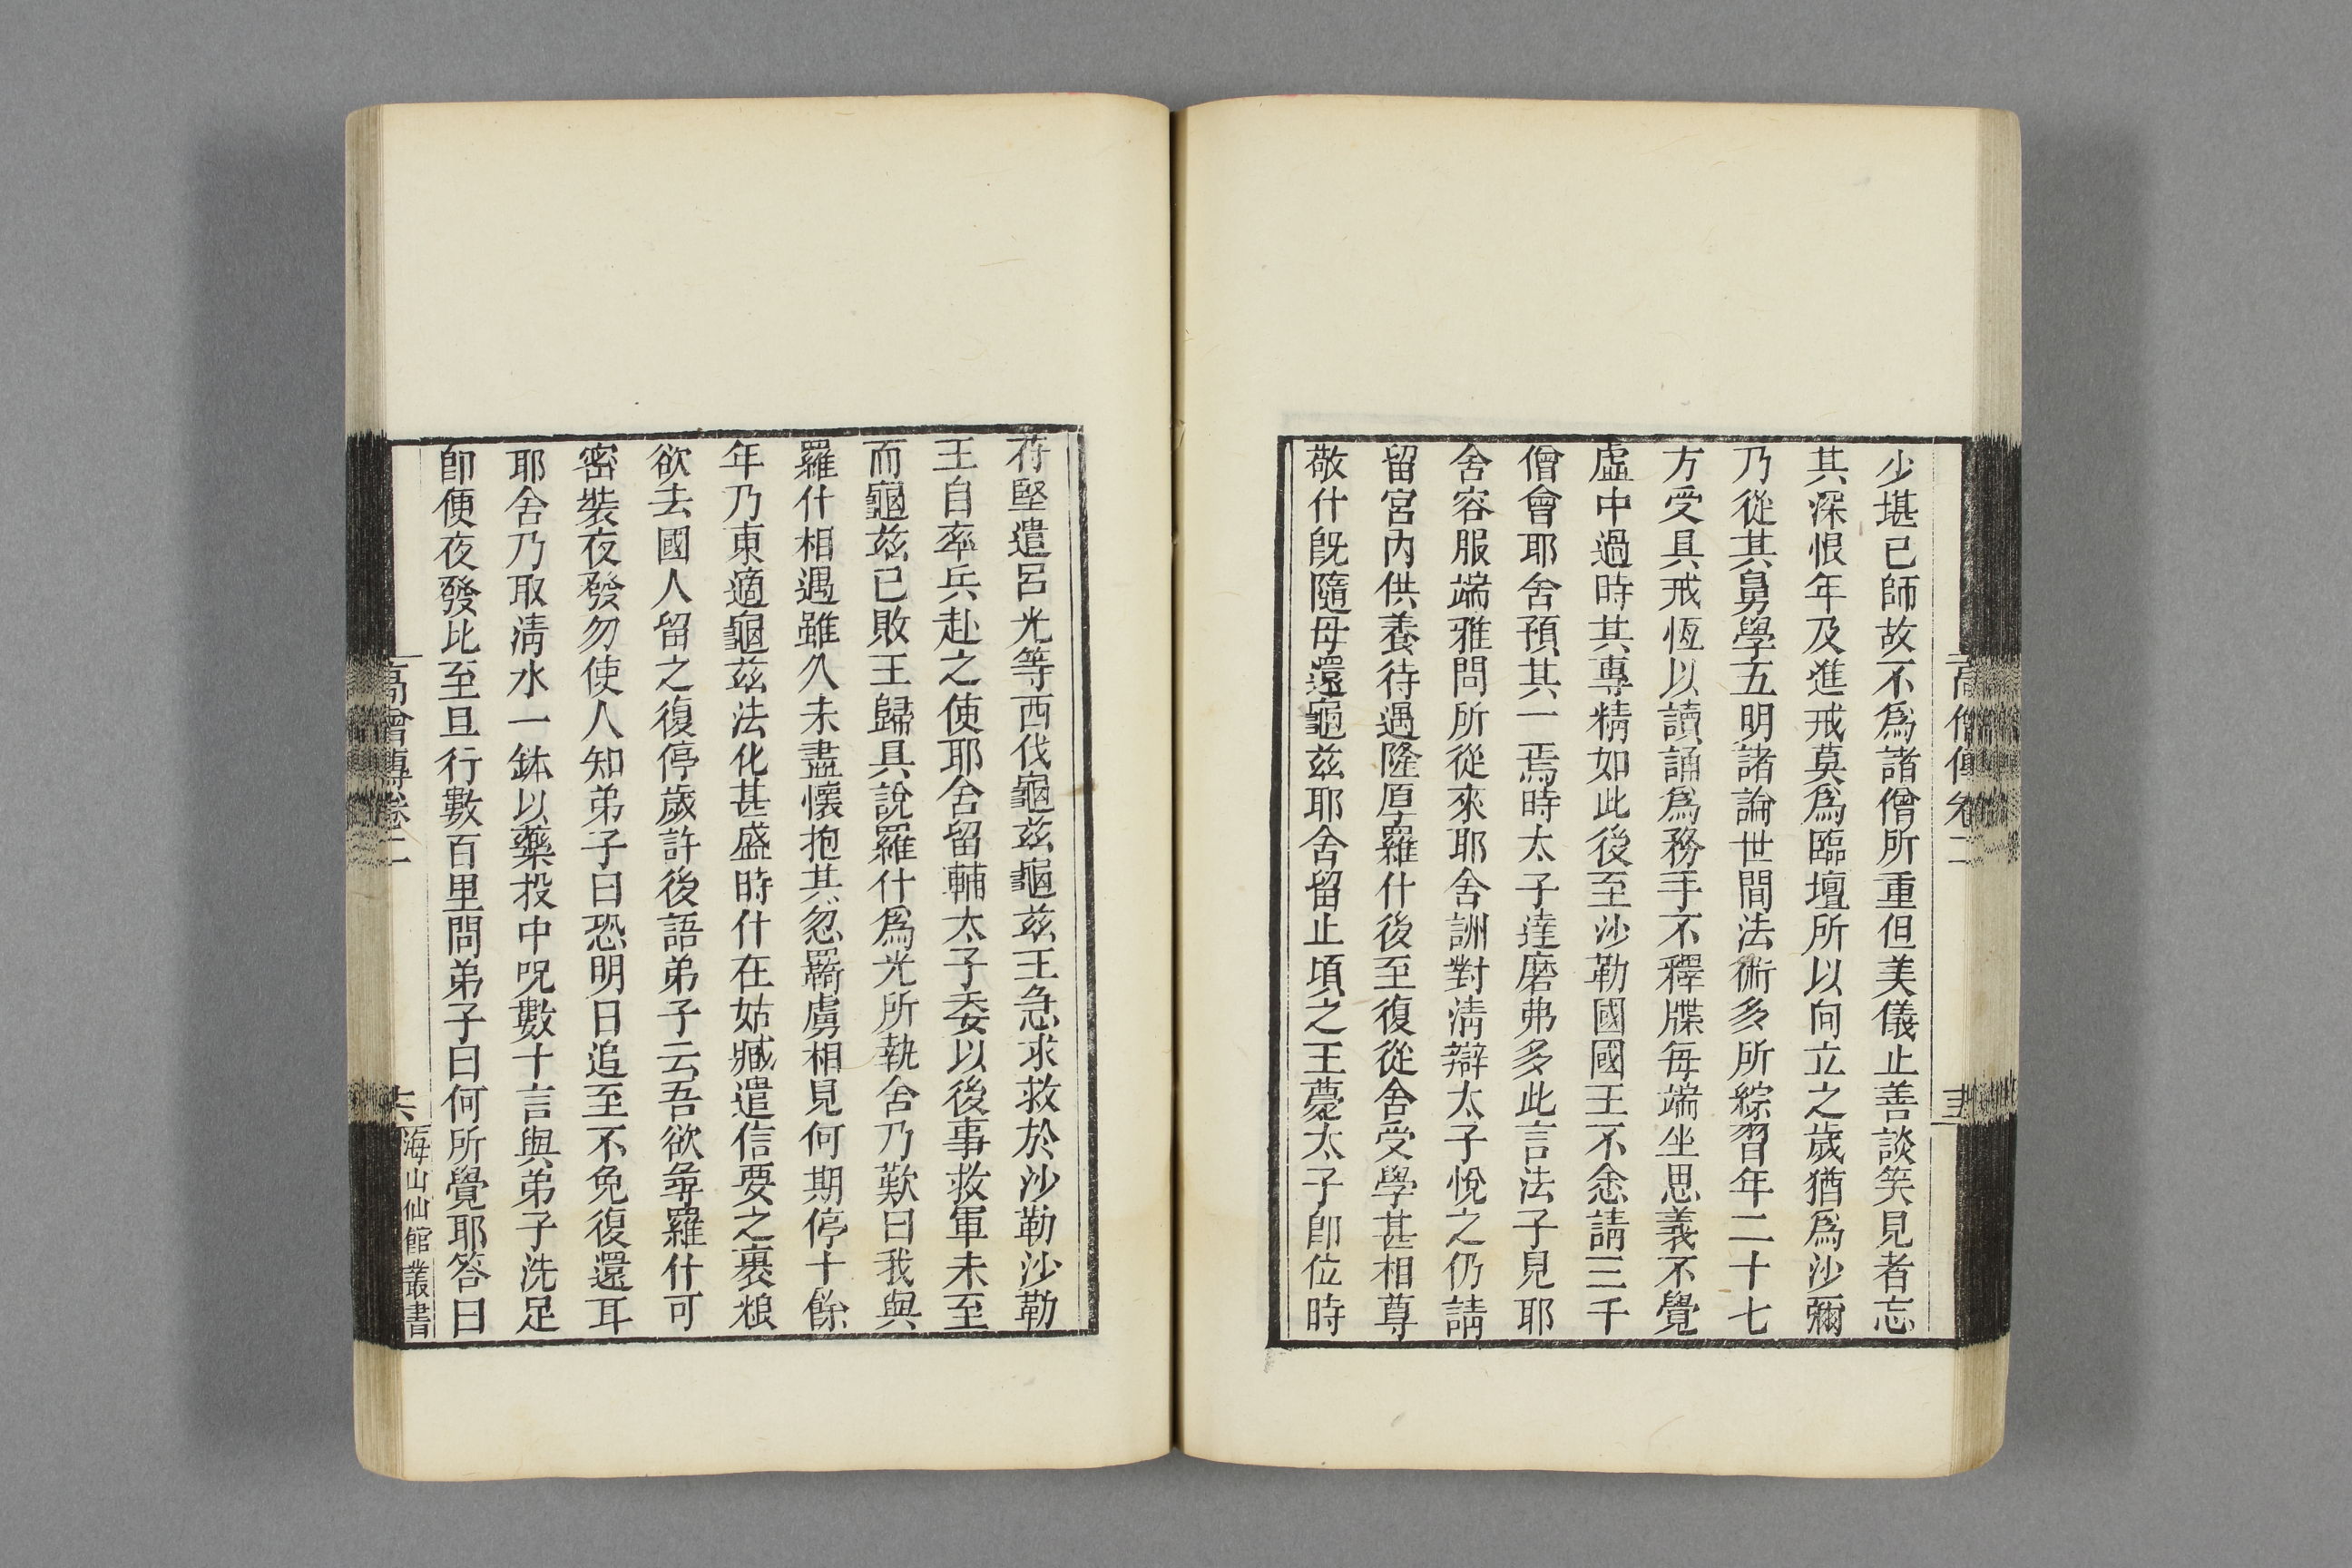 高僧傳卷二
少堪己師故不爲諸僧所重但美儀止善談笑見者忘
其深恨年及進戒莫爲臨壇所以向立之歲猶爲沙彌
乃從其舅學五明諸論世間法術多所綜習年二十七
方受具戒恆以讀誦爲務手不釋牒每端坐思義不覺
虛中過時其專精如此後至沙勒國國王不悆請三千
僧會耶舍預其一焉時太子達磨弗多此言法子見耶
舍容服端雅問所從來耶舍詶對清辯太子悅之仍請
留宮內供養待遇隆厚羅什後至復從舍受學甚相尊
敬什旣隨母還龜茲耶舍留止頃之王薨太子卽位時
苻堅遣呂光等西伐龜茲龜茲王急求救於沙勒沙勒
王自率兵赴之使耶舍留輔太子委以後事救軍未至
而龜茲已敗王歸具說羅什爲光所執舍乃歎曰我與
羅什相遇雖久未盡懷抱其忽羈虜相見何期停十餘
年乃東適龜茲法化甚盛時什在姑臧遣信要之裹糧
欲去國人留之復停歲許後語弟子云吾欲尋羅什可
密裝夜發勿使人知弟子曰恐明日追至不免復還耳
耶舍乃取清水一鉢以藥投中呪數十言與弟子洗足
卽便夜發比至旦行數百里問弟子曰何所覺耶答曰
高僧傳卷二
六
海山仙館叢書